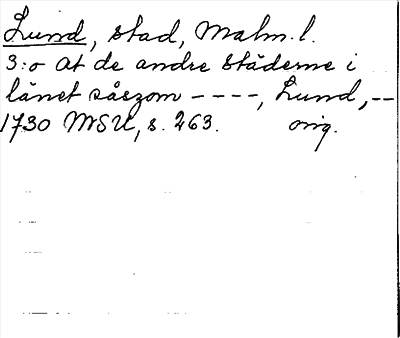 Lund, stad, Malm. l.
3:o At de andre städerne i
länet såszom ----, Lund, --
1730 MSU, s. 263. orig.